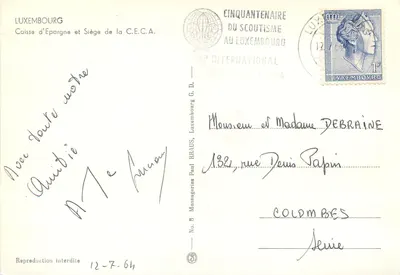 LUXEMBOURG
Caisse d'Epargne et Siège de la C.E.C.A.
CINQUANTENAIRE
DU SCOUTISME
AU LUXEMBOURG
LUXEMBOURG
Avec toute notre
Amitié
Monsieur et Madame DEBRAINE
132, rue Denis Papin
COLOMBES
Seine
No. 8 Messageries Paul KRAUS, Luxembourg G. D.
Reproduction interdite
12-7-64